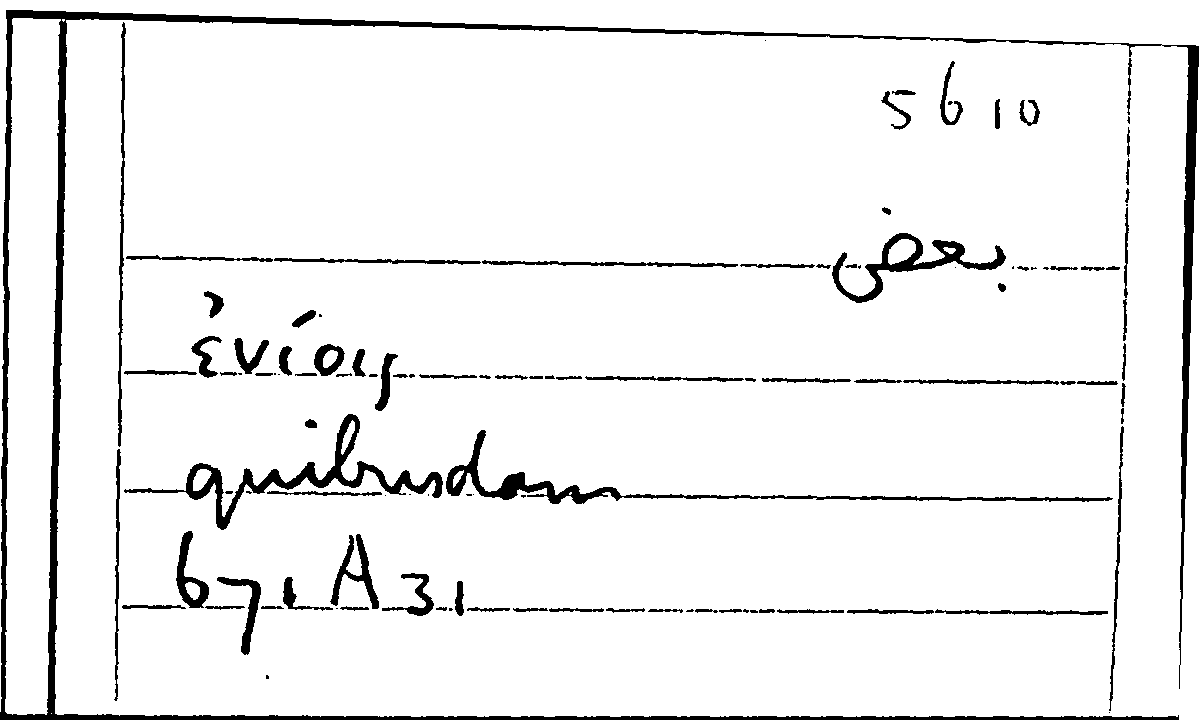 56 10
بعض
ἐνίοις
quibusdam
671 A 31